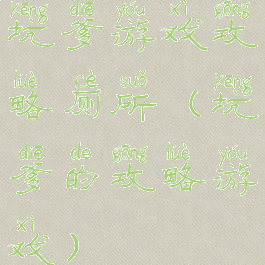 kēng diē yóu xì gōng
坑 爹 游 戏 攻
lüè cè suǒ kēng
略 厕 所 ( 坑
diē de gōng lüè yóu
爹 的 攻 略 游
xì
戏 )